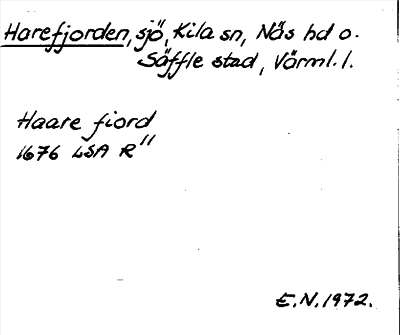 Harefjorden, sjö, Kila sn, Näs hd o.
Säffle stad, Värml. l.
Haare fiord
1676 LSA R"
E.N. 1972.